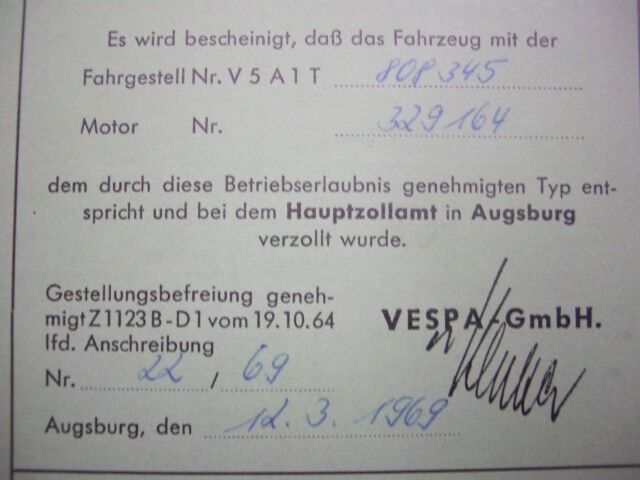 Es wird bescheinigt, daß das Fahrzeug mit der
Fahrgestell Nr. V 5 A 1 T 808345
Motor Nr. 329164
dem durch diese Betriebserlaubnis genehmigten Typ ent-
spricht und bei dem Hauptzollamt in Augsburg
verzollt wurde.
Gestellungsbefreiung geneh-
migt Z 1123 B - D 1 vom 19.10.64
lfd. Anschreibung
Nr. 22 / 69
VESPA-GmbH.
Augsburg, den 12. 3. 1969